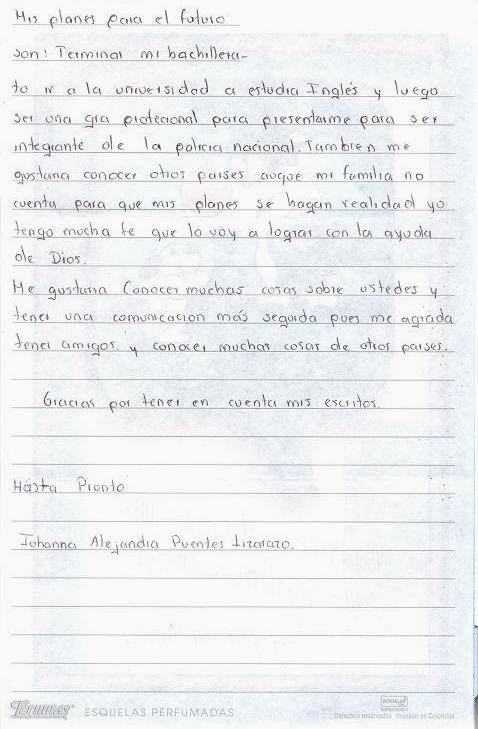 Mis planes para el futuro
son: Terminar mi bachillera-
to ir a la universidad a estudia Inglés y luego
ser una gra profecional para presentarme para ser
integrante de la policia nacional. Tambien me
gustaria conocer otros paises auque mi familia no
cuenta para que mis planes se hagan realidad yo
tengo mucha fe que lo voy a lograr con la ayuda
de Dios.
Me gustaria Conocer muchas cosas sobre ustedes y
tener una comunicacion más seguida pues me agrada
tener amigos y conocer muchas cosas de otros paises.
Gracias por tener en cuenta mis escritos.
Hasta Pronto
Johanna Alejandra Puentes
ESQUELAS PERFUMADAS
Derechos reservados Impreso en Colombia